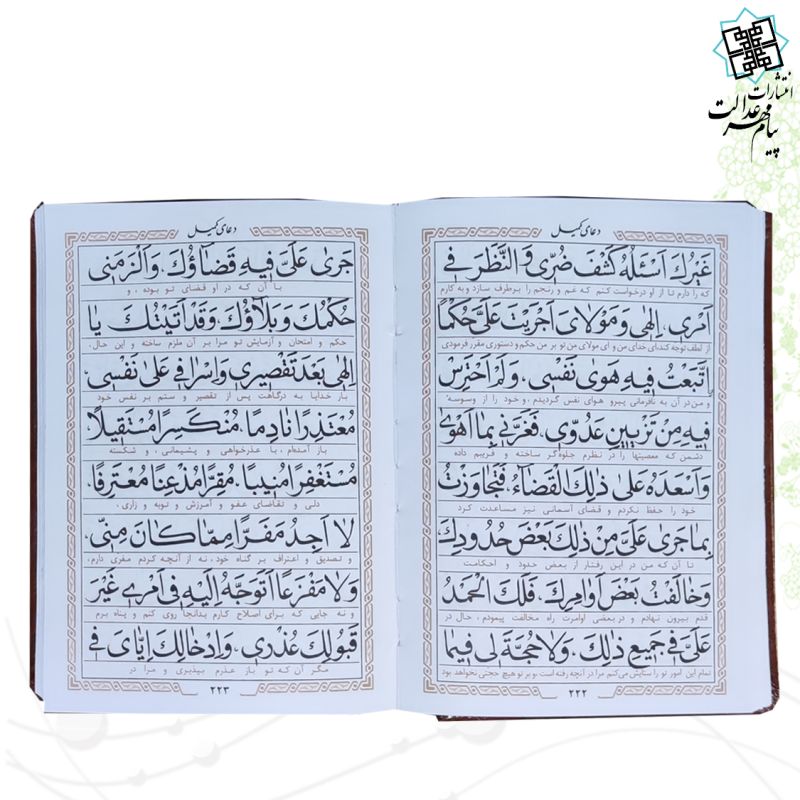 انتشارات
پیام مهر عدالت
دعای کمیل
غَیْرُكَ اَسْئَلُهُ كَشْفَ ضُرّی وَالنَّظَرَ فی
که را دارم تا از او درخواست کنم که غم و رنجم را برطرف سازد و به کارم
اَمْری، اِلهی وَ مَوْلایَ اَجْرَیْتَ عَلَیَّ حُكْمًا
از لطف توجه کند ای خدای من و ای مولای من تو بر من حکم و دستوری مقرر فرمودی
اِتَّبَعْتُ فیهِ هَوی نَفْسی، وَلَمْ اَحْتَرِسْ
و من در آن به نافرمانی پیرو هوای نفس گردیدم، و خود را از وسوسه
فیهِ مِنْ تَزْیینِ عَدُوّی، فَغَرَّنی بِما اَهْوی
دشمن که معصیتها را در نظرم جلوه‌گر ساخته و فریبم داده
وَاَسْعَدَهُ عَلی ذلِكَ الْقَضآءُ، فَتَجاوَزْتُ
خود را حفظ نکردم و قضای آسمانی نیز مساعدت کرد
بِما جَری عَلَیَّ مِنْ ذلِكَ بَعْضَ حُدُودِكَ
تا آن که من در این رفتار از بعض حدود و احکامت
وَخالَفْتُ بَعْضَ اَوامِرِكَ، فَلَكَ الْحَمْدُ
قدم بیرون نهادم و در بعضی اوامرت راه مخالفت پیمودم، حال در
عَلَیَّ فی جَمیعِ ذلِكَ، وَلا حُجَّةَ لی فیما
تمام این امور تو را ستایش می‌کنم مرا در آنچه رفته است، و بر تو هیچ حجتی نخواهد بود
۲۲۲
دعای کمیل
جَری عَلَیَّ فیهِ قَضآؤُكَ، وَاَلْزَمَنی
با آن که در او قضای تو بوده، و
حُكْمُكَ وَبَلآؤُكَ، وَقَدْ اَتَیْتُكَ یا
حکم و امتحان و آزمایش تو مرا بر آن ملزم ساخته و این حال،
اِلهی بَعْدَ تَقْصیری وَاِسْرافی عَلی نَفْسی،
بار خدایا به درگاهت پس از تقصیر و ستم بر نفس خود
مُعْتَذِرًا نادِمًا، مُنْكَسِرًا مُسْتَقیلًا،
باز آمده‌ام، با عذرخواهی و پشیمانی، و شکسته
مُسْتَغْفِرًا مُنیبًا، مُقِرًّا مُذْعِنًا مُعْتَرِفًا،
دلی و تقاضای عفو و آمرزش و توبه و زاری،
لا اَجِدُ مَفَرًّا مِمّا كانَ مِنّی،
و تصدیق و اعتراف بر گناه خود، نه از آنچه کردم مفری دارم،
وَلا مَفْزَعًا اَتَوَجَّهُ اِلَیْهِ فی اَمْری غَیْرَ
و نه جایی که برای اصلاح کارم بدانجا روی کنم و پناه برم
قَبُولِكَ عُذْری، وَاِدْخالِكَ اِیّایَ فی
مگر آن که تو باز عذرم بپذیری و مرا در
۲۲۳